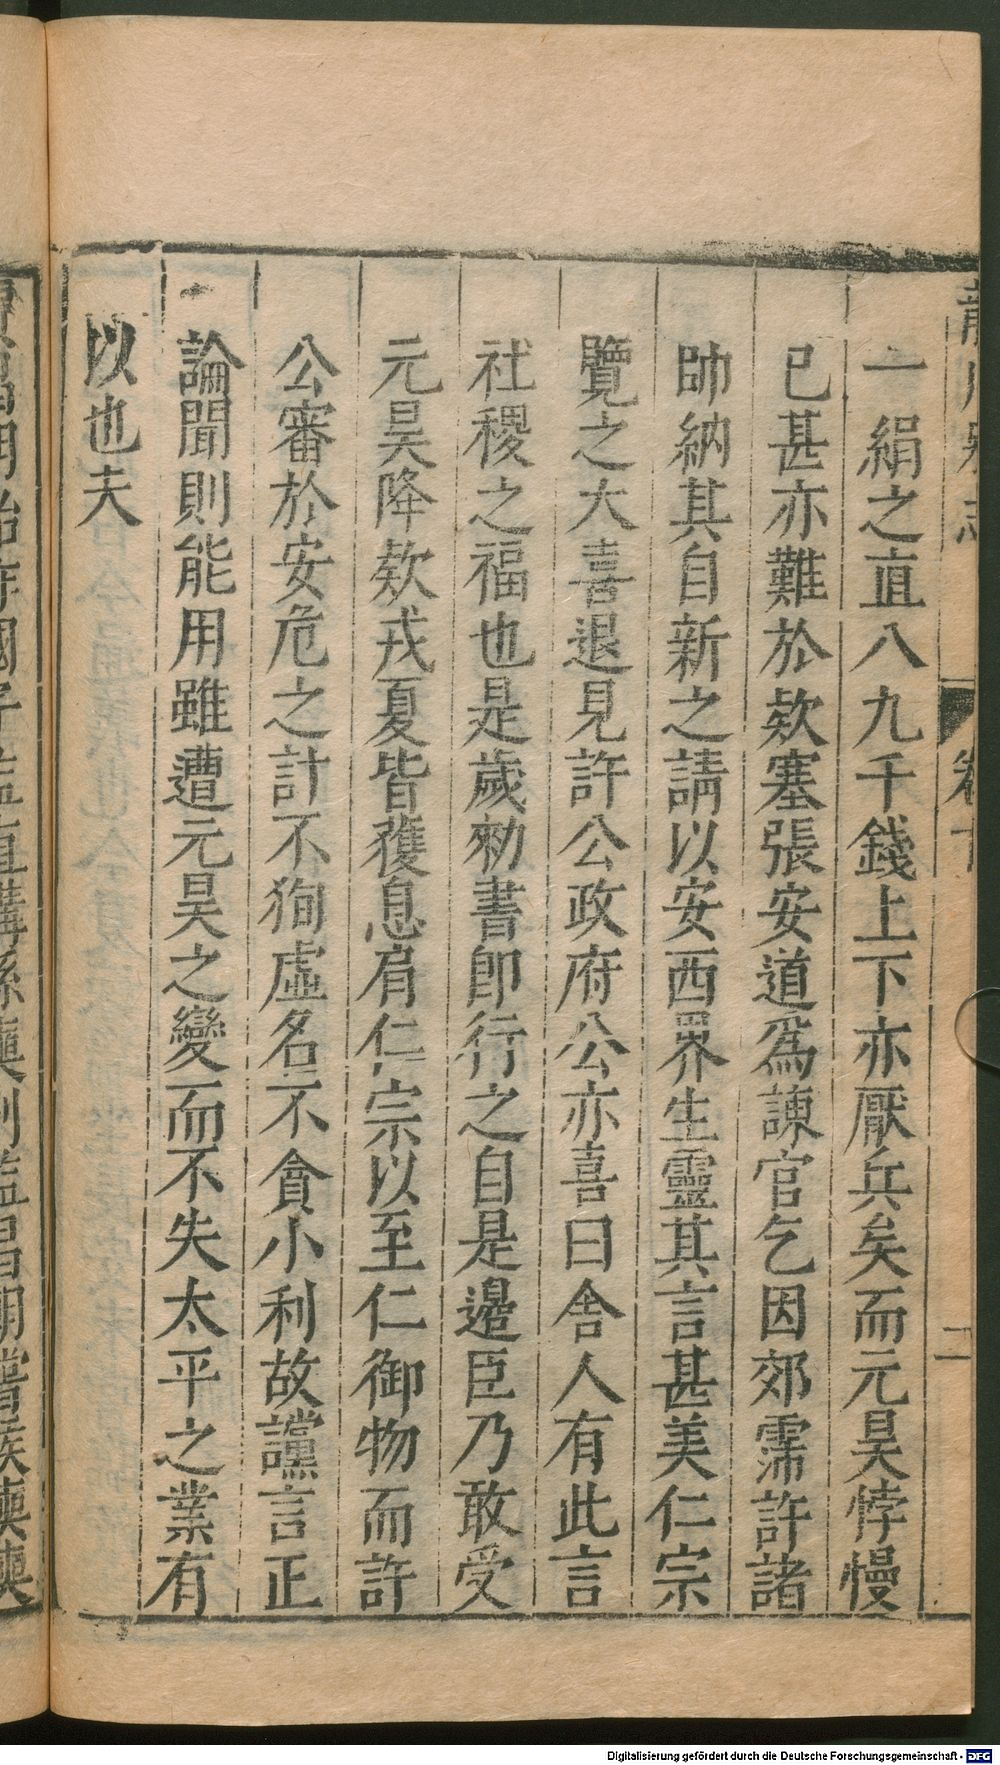 一絹之直八九千錢上下亦厭兵矣而元昊悖慢
已甚亦難於欵塞張安道爲諫官乞因郊霈許諸
帥納其自新之請以安西界生靈其言甚美仁宗
覽之大喜退見許公政府公亦喜曰舍人有此言
社稷之福也是歲勑書即行之自是邊臣乃敢受
元昊降欵戎夏皆獲息肩仁宗以至仁御物而許
公審於安危之計不狥虛名不貪小利故讜言正
論聞則能用雖遭元昊之變而不失太平之業有
以也夫
卷
二
Digitalisierung gefördert durch die Deutsche Forschungsgemeinschaft - DFG